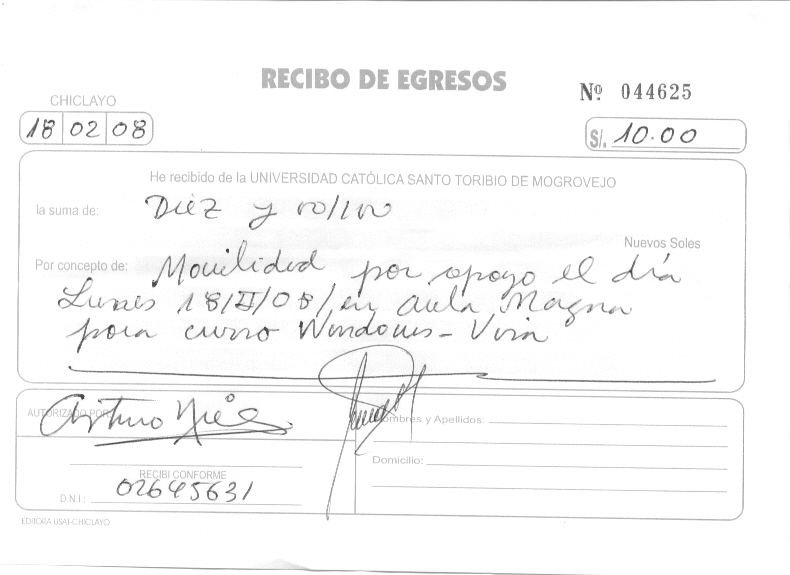 RECIBO DE EGRESOS
Nº 044625
CHICLAYO
18 02 08
S/. 10.00
He recibido de la UNIVERSIDAD CATÓLICA SANTO TORIBIO DE MOGROVEJO
la suma de: Diez y 00/100
Nuevos Soles
Por concepto de: Movilidad por apoyo el día
Lunes 18/II/08/en aula Magna
para curso Windows-
AUTORIZADO POR:
Arturo
Nombres y Apellidos:
Domicilio:
RECIBI CONFORME
D.N.I: 02645631
EDITORA USAT-CHICLAYO